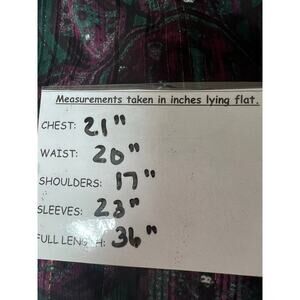 Measurements taken in inches lying flat.
CHEST: 21"
WAIST: 20"
SHOULDERS: 17"
SLEEVES: 23"
FULL LENGTH: 36"